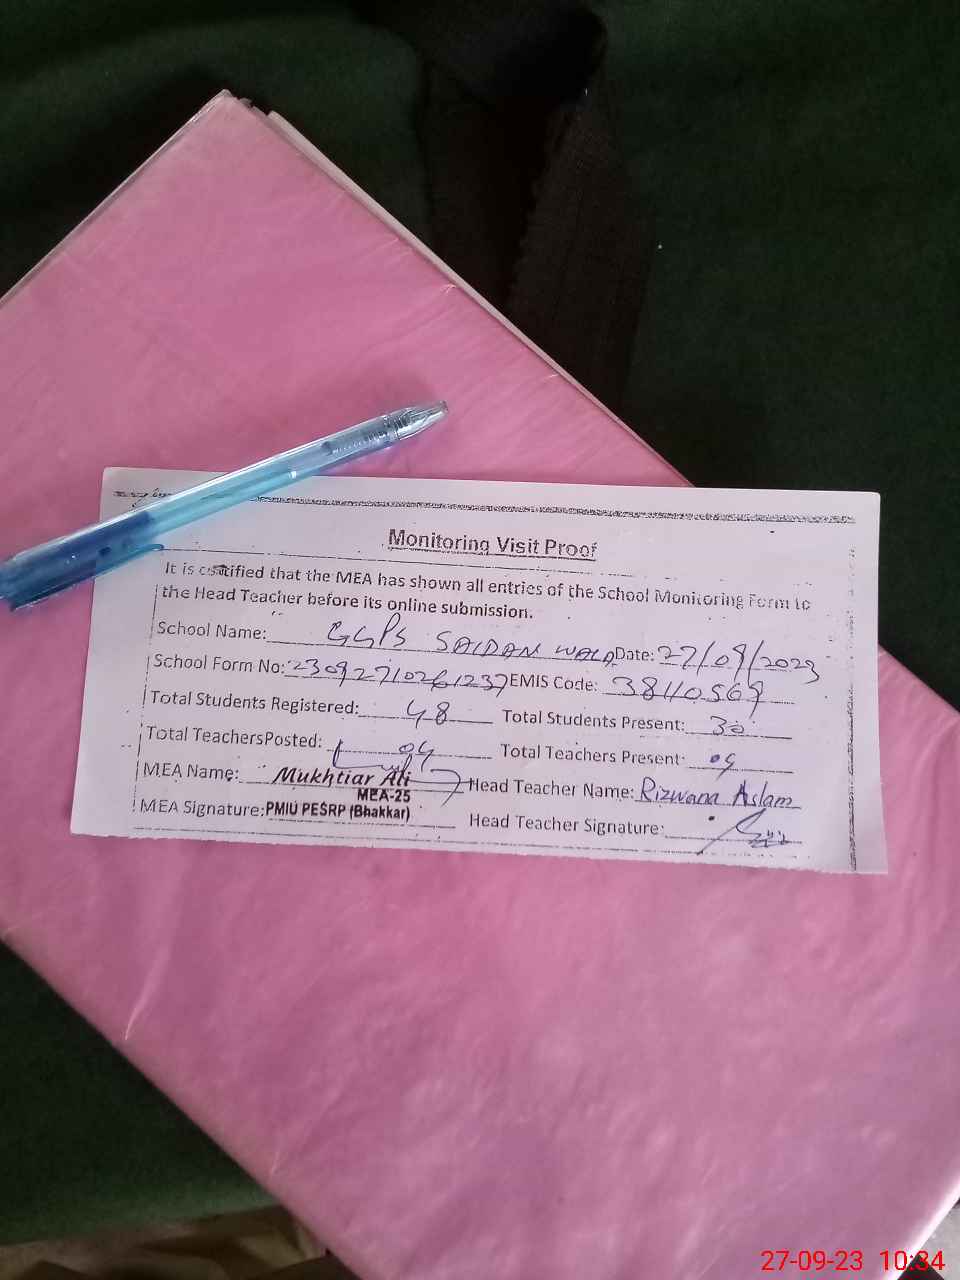 Monitoring Visit Proof
It is certified that the MEA has shown all entries of the School Monitoring Form to
the Head Teacher before its online submission.
School Name: GGPS SAIDAN WALA Date: 27/09/2023
School Form No: 23092710261237 EMIS Code: 38110569
Total Students Registered: 48 Total Students Present: 30
Total TeachersPosted: 04 Total Teachers Present: 04
MEA Name: Mukhtiar Ali Head Teacher Name: Rizwana Aslam
MEA-25
MEA Signature: PMIU PESRP (Bhakkar) Head Teacher Signature:
27-09-23 10:34